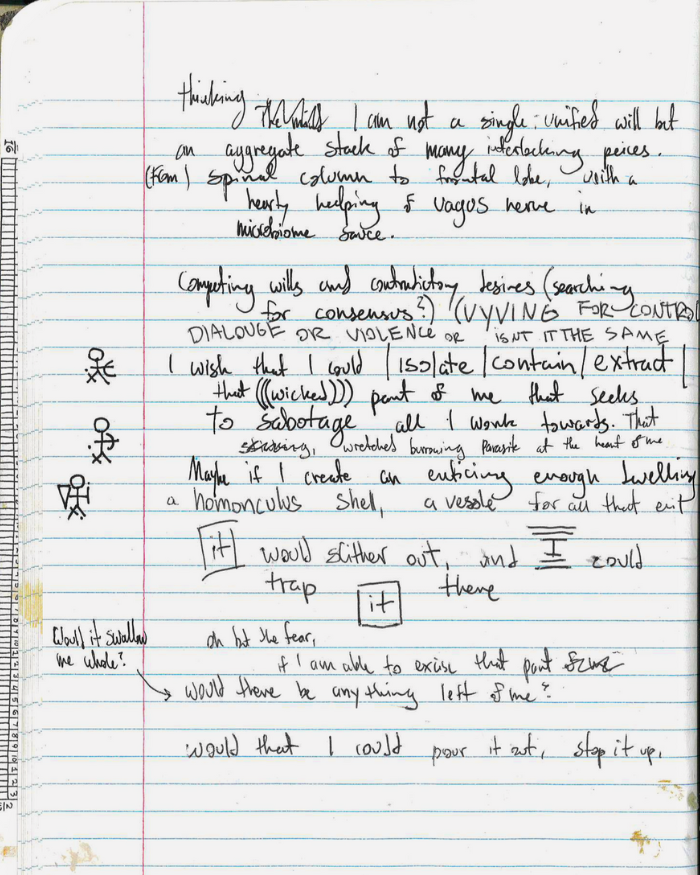 thinking I am not a single: unified will but
an aggregate stack of many interlocking peices.
(From) spinal column to frontal lobe, with a
hearty helping of vagus nerve in
microbiome sauce.
Competing wills and contradictory desires (searching
for consensus?) (VYVING FOR CONTROL
DIALOUGE OR VIOLENCE OR ISNT IT THE SAME
I wish that I could | isolate | contain / extract |
that (((wicked))) part of me that seeks
to sabotage all I work towards. That
wretched burrowing parasite at the heart of me
Maybe if I create an enticing enough dwelling
a homonculus shell, a vessle for all that evil
it would slither out, and I could
trap it there
Would it swallow
me whole?
oh but the fear,
if I am able to excise that part
would there be anything left of me?
would that I could pour it out, stop it up,